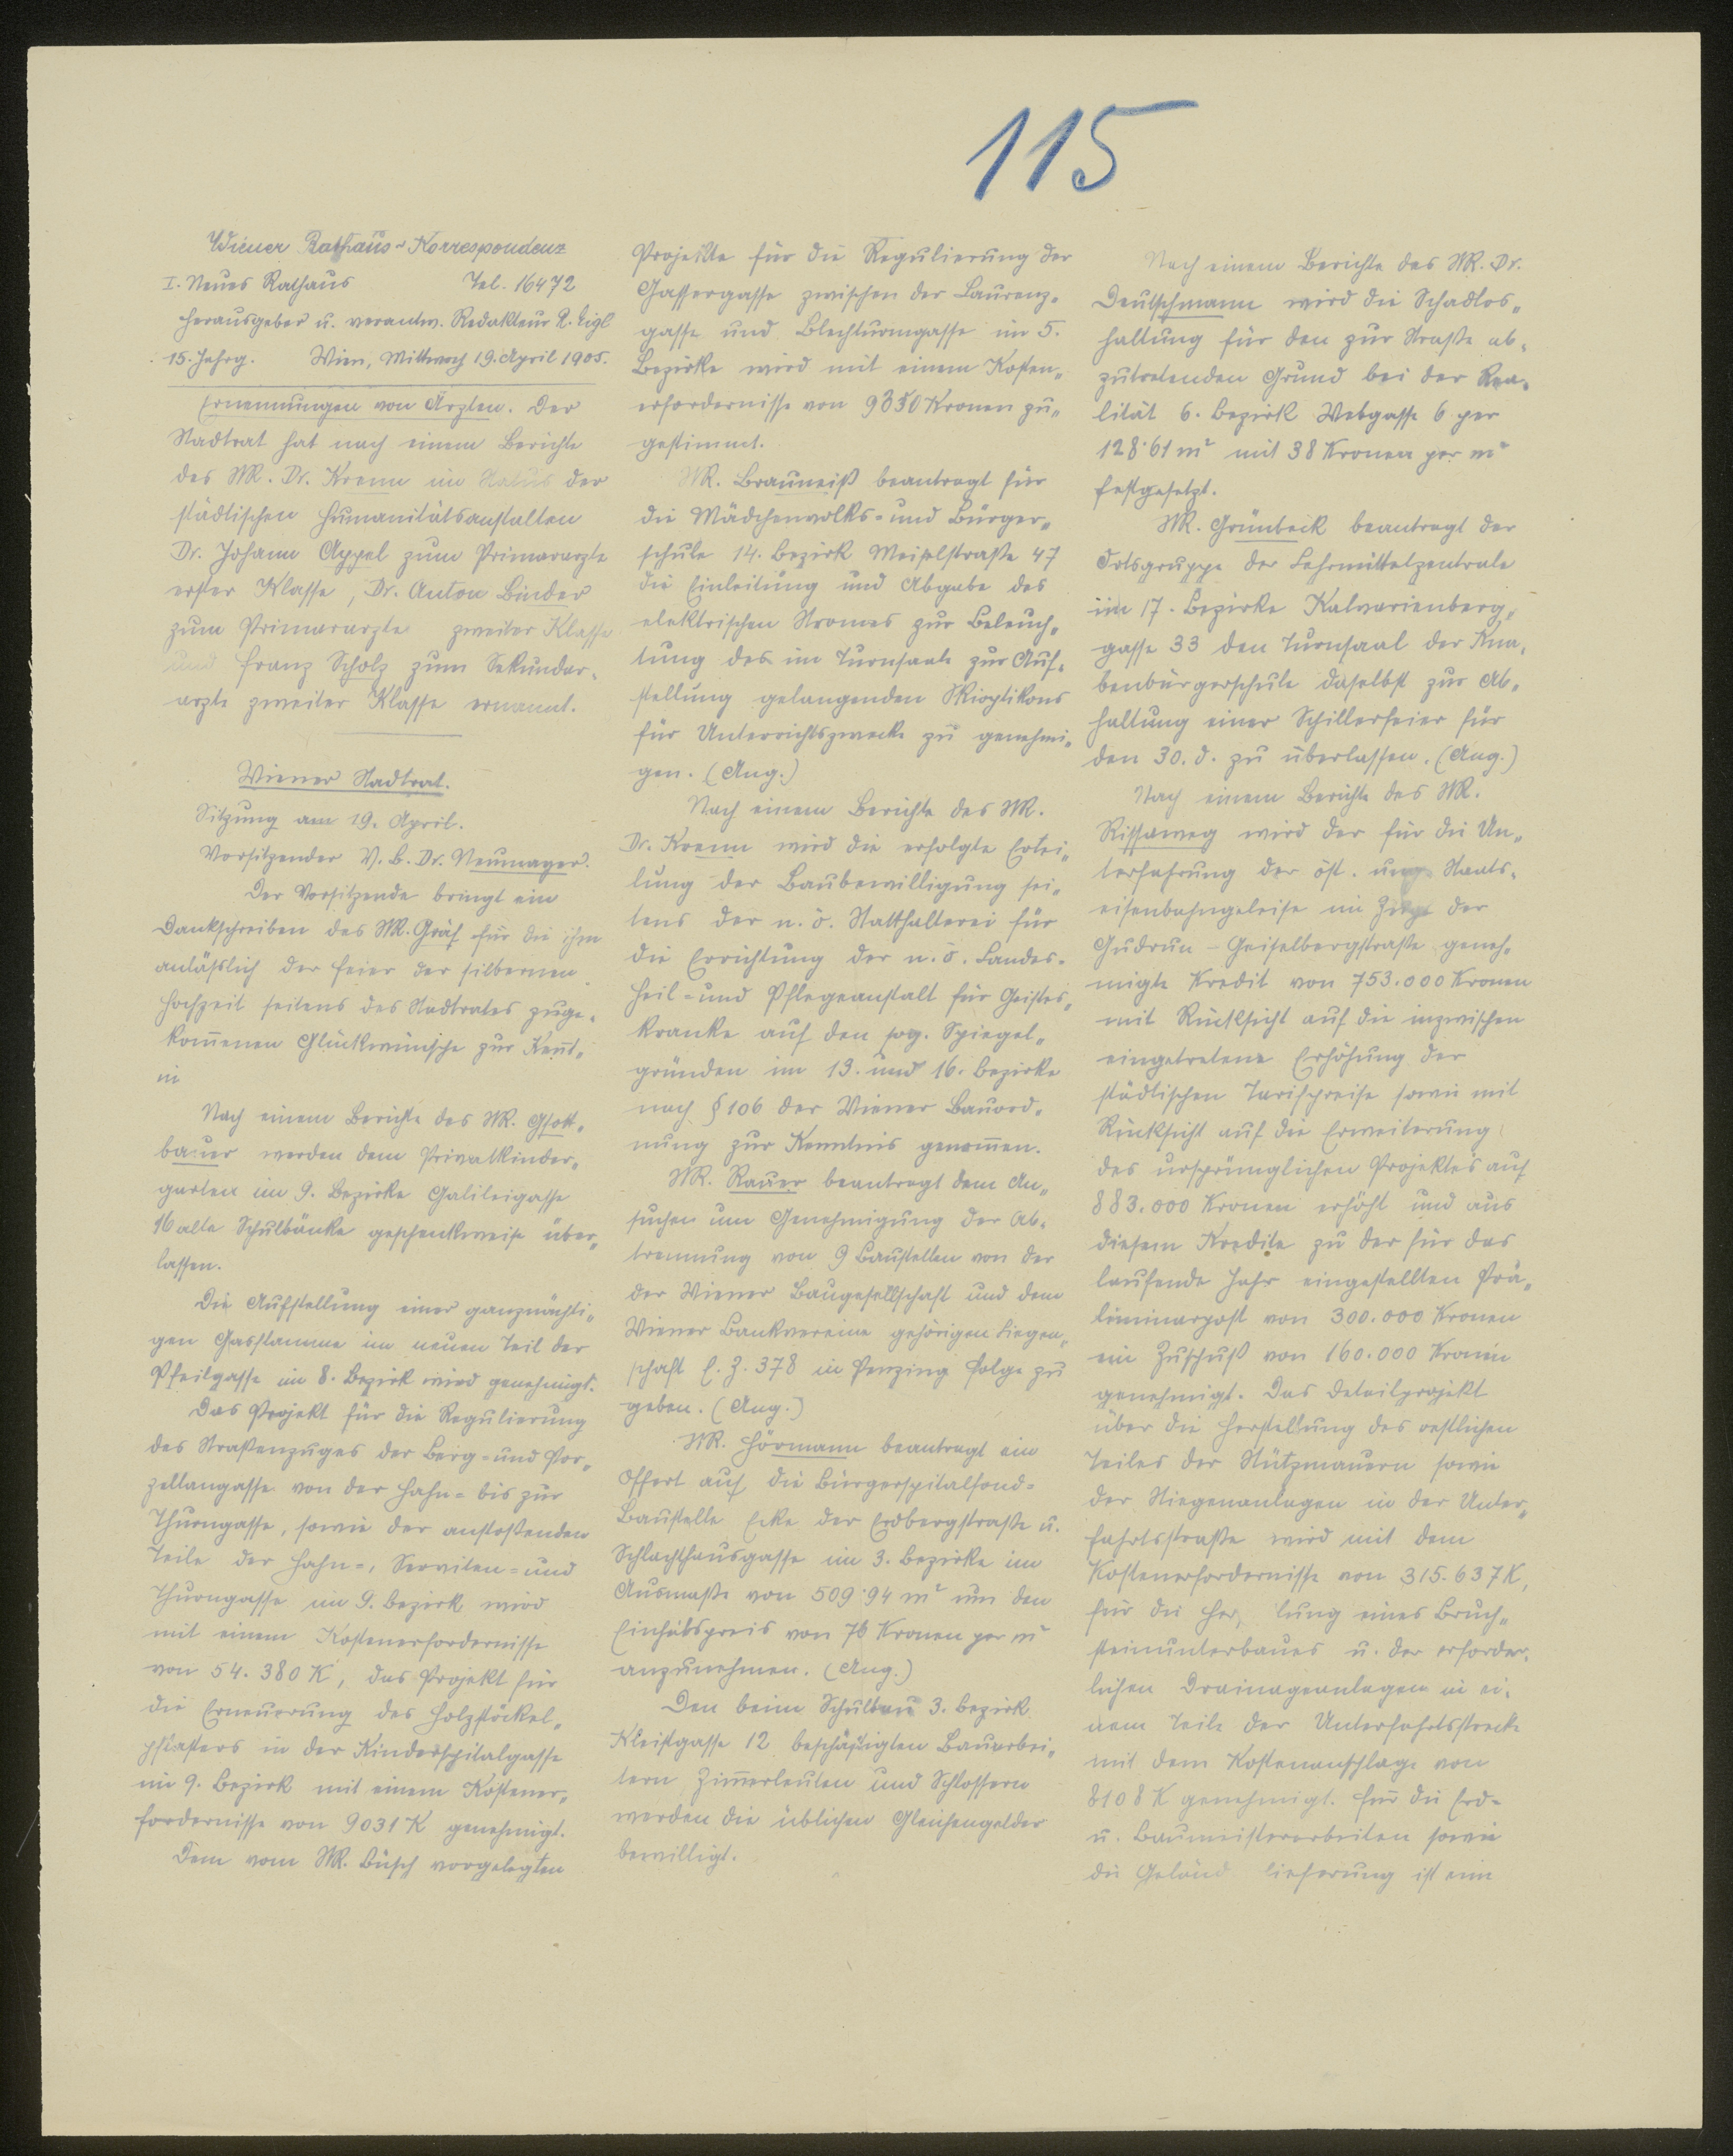 115
Wiener Rathaus-Korrespondenz
I. Neues Rathaus Tel. 16472
Herausgeber u. verantw. Redakteur R. Eigl
15. Jahrg. Wien, Mittwoch 19. April 1905.
Ernennungen von Ärzten. Der
Stadtrat hat nach einem Berichte
des StR. Dr. Krenn im Status der
städtischen Humanitätsanstalten
Dr. Johann Appel zum Primararzte
erster Klasse, Dr. Anton Binder
zum Primararzte zweiter Klasse
und Franz Scholz zum Sekundar-
arzte zweiter Klasse ernannt.
Wiener Stadtrat.
Sitzung am 19. April.
Vorsitzender V.B. Dr. Neumayer.
Der Vorsitzende bringt ein
Dankschreiben des StR. Gräf für die ihm
anläßlich der Feier der silbernen
Hochzeit seitens des Stadtrates zuge-
kom̄enen Glückwünsche zur Kent̄-
ni
Nach einem Berichte des StR. Gsott-
bauer werden dem Privatkinder-
garten im 9. Bezirke Galileigasse
16 alte Schulbänke geschenkweise über-
lassen.
Die Aufstellung einer ganznächti-
gen Gasflamme im neuen Teil der
Pfeilgasse im 8. Bezirk wird genehmigt.
Das Projekt für die Regulierung
des Straßenzuges der Berg- und Por-
zellangasse von der Hahn- bis zur
Thurngasse, sowie der anstoßenden
Teile der Hahn-, Serviten- und
Thurngasse im 9. Bezirk wird
mit einem Kostenerfordernisse
von 54.380 K, das Projekt für
die Erneuerung des Holzstöckel-
pflasters in der Kinderspitalgasse
im 9. Bezirk mit einem Kostener-
fordernisse von 9031 K genehmigt.
Dem vom StR. Büsch vorgelegten
Projekte für die Regulierung der
Gassergasse zwischen der Laurenz-
gasse und Blechturmgasse im 5.
Bezirke wird mit einem Kosten-
erfordernisse von 9350 Kronen zu-
gestimmt.
StR. Brauneiß beantragt für
die Mädchenvolks- und Bürger-
schule 14. Bezirk Meiselstraße 47
die Einleitung und Abgabe des
elektrischen Stromes zur Beleuch-
tung des im Turnsaale zur Auf-
stellung gelangenden Skioptikons
für Unterrichtszwecke zu genehmi-
gen. (Ang.)
Nach einem Berichte des StR.
Dr. Krenn wird die erfolgte Ertei-
lung der Baubewilligung sei-
tens der n.ö. Statthalterei für
die Errichtung der n.ö. Landes-
Heil- und Pflegeanstalt für Geistes-
kranke auf den sog. Spiegel-
gründen im 13. und 16. Bezirke
nach § 106 der Wiener Bauord-
nung zur Kenntnis genom̄en.
StR. Rauer beantragt dem An-
suchen um Genehmigung der Ab-
trennung von 9 Baustellen von der
der Wiener Baugesellschaft und dem
Wiener Bankvereine gehörigen Liegen-
schaft E.Z. 378 in Penzing Folge zu
geben. (Ang.)
StR. Hörmann beantragt ein
Offert auf die Bürgerspitalfond-
Baustelle Ecke der Erdbergstraße u.
Schlachthausgasse im 3. Bezirke im
Ausmaße von 509·94 m² um den
Einheitspreis von 76 Kronen per m²
anzunehmen. (Ang.)
Den beim Schulbau 3. Bezirk
Kleistgasse 12 beschäftigten Bauarbei-
tern, Zim̄erleuten und Schlossern
werden die üblichen Gleichengelder
bewilligt.
Nach einem Berichte des StR. Dr.
Deutschmann wird die Schadlos-
haltung für den zur Straße ab-
zutretenden Grund bei der Rea-
lität 6. Bezirk Webgasse 6 per
128·61 m² mit 38 Kronen per m²
festgesetzt.
StR. Grünbeck beantragt der
Ortsgruppe der Lehrmittelzentrale
im 17. Bezirke Kalvarienberg-
gasse 33 den Turnsaal der Kna-
benbürgerschule daselbst zur Ab-
haltung einer Schillerfeier für
den 30. d. zu überlassen. (Ang.)
Nach einem Berichte des StR.
Rissaweg wird der für die Un-
terfahrung der öst. ung. Staats-
eisenbahngeleise im Zuge der
Gudrun-Geiselbergstraße geneh-
migte Kredit von 753.000 Kronen
mit Rücksicht auf die inzwischen
eingetretene Erhöhung der
städtischen Tarifpreise sowie mit
Rücksicht auf die Erweiterung
des ursprünglichen Projektes auf
883.000 Kronen erhöht und aus
diesem Kredite zu der für das
laufende Jahr eingestellten Prä-
liminarpost von 300.000 Kronen
ein Zuschuß von 160.000 Kronen
genehmigt. Das Detailprojekt
über die Herstellung des restlichen
Teiles der Stützmauern sowie
der Stiegenanlagen in der Unter-
fahrtsstraße wird mit dem
Kostenerfordernisse von 315.637 K,
für die Her lung eines Bruch-
steinunterbaues u. der erforder-
lichen Drainageanlagen in ei-
nem Teile der Unterfahrtsstrecke
mit dem Kostenanschlage von
8108 K genehmigt. Für die Erd-
u. Baumeisterarbeiten sowie
die Geländ lieferung ist eine